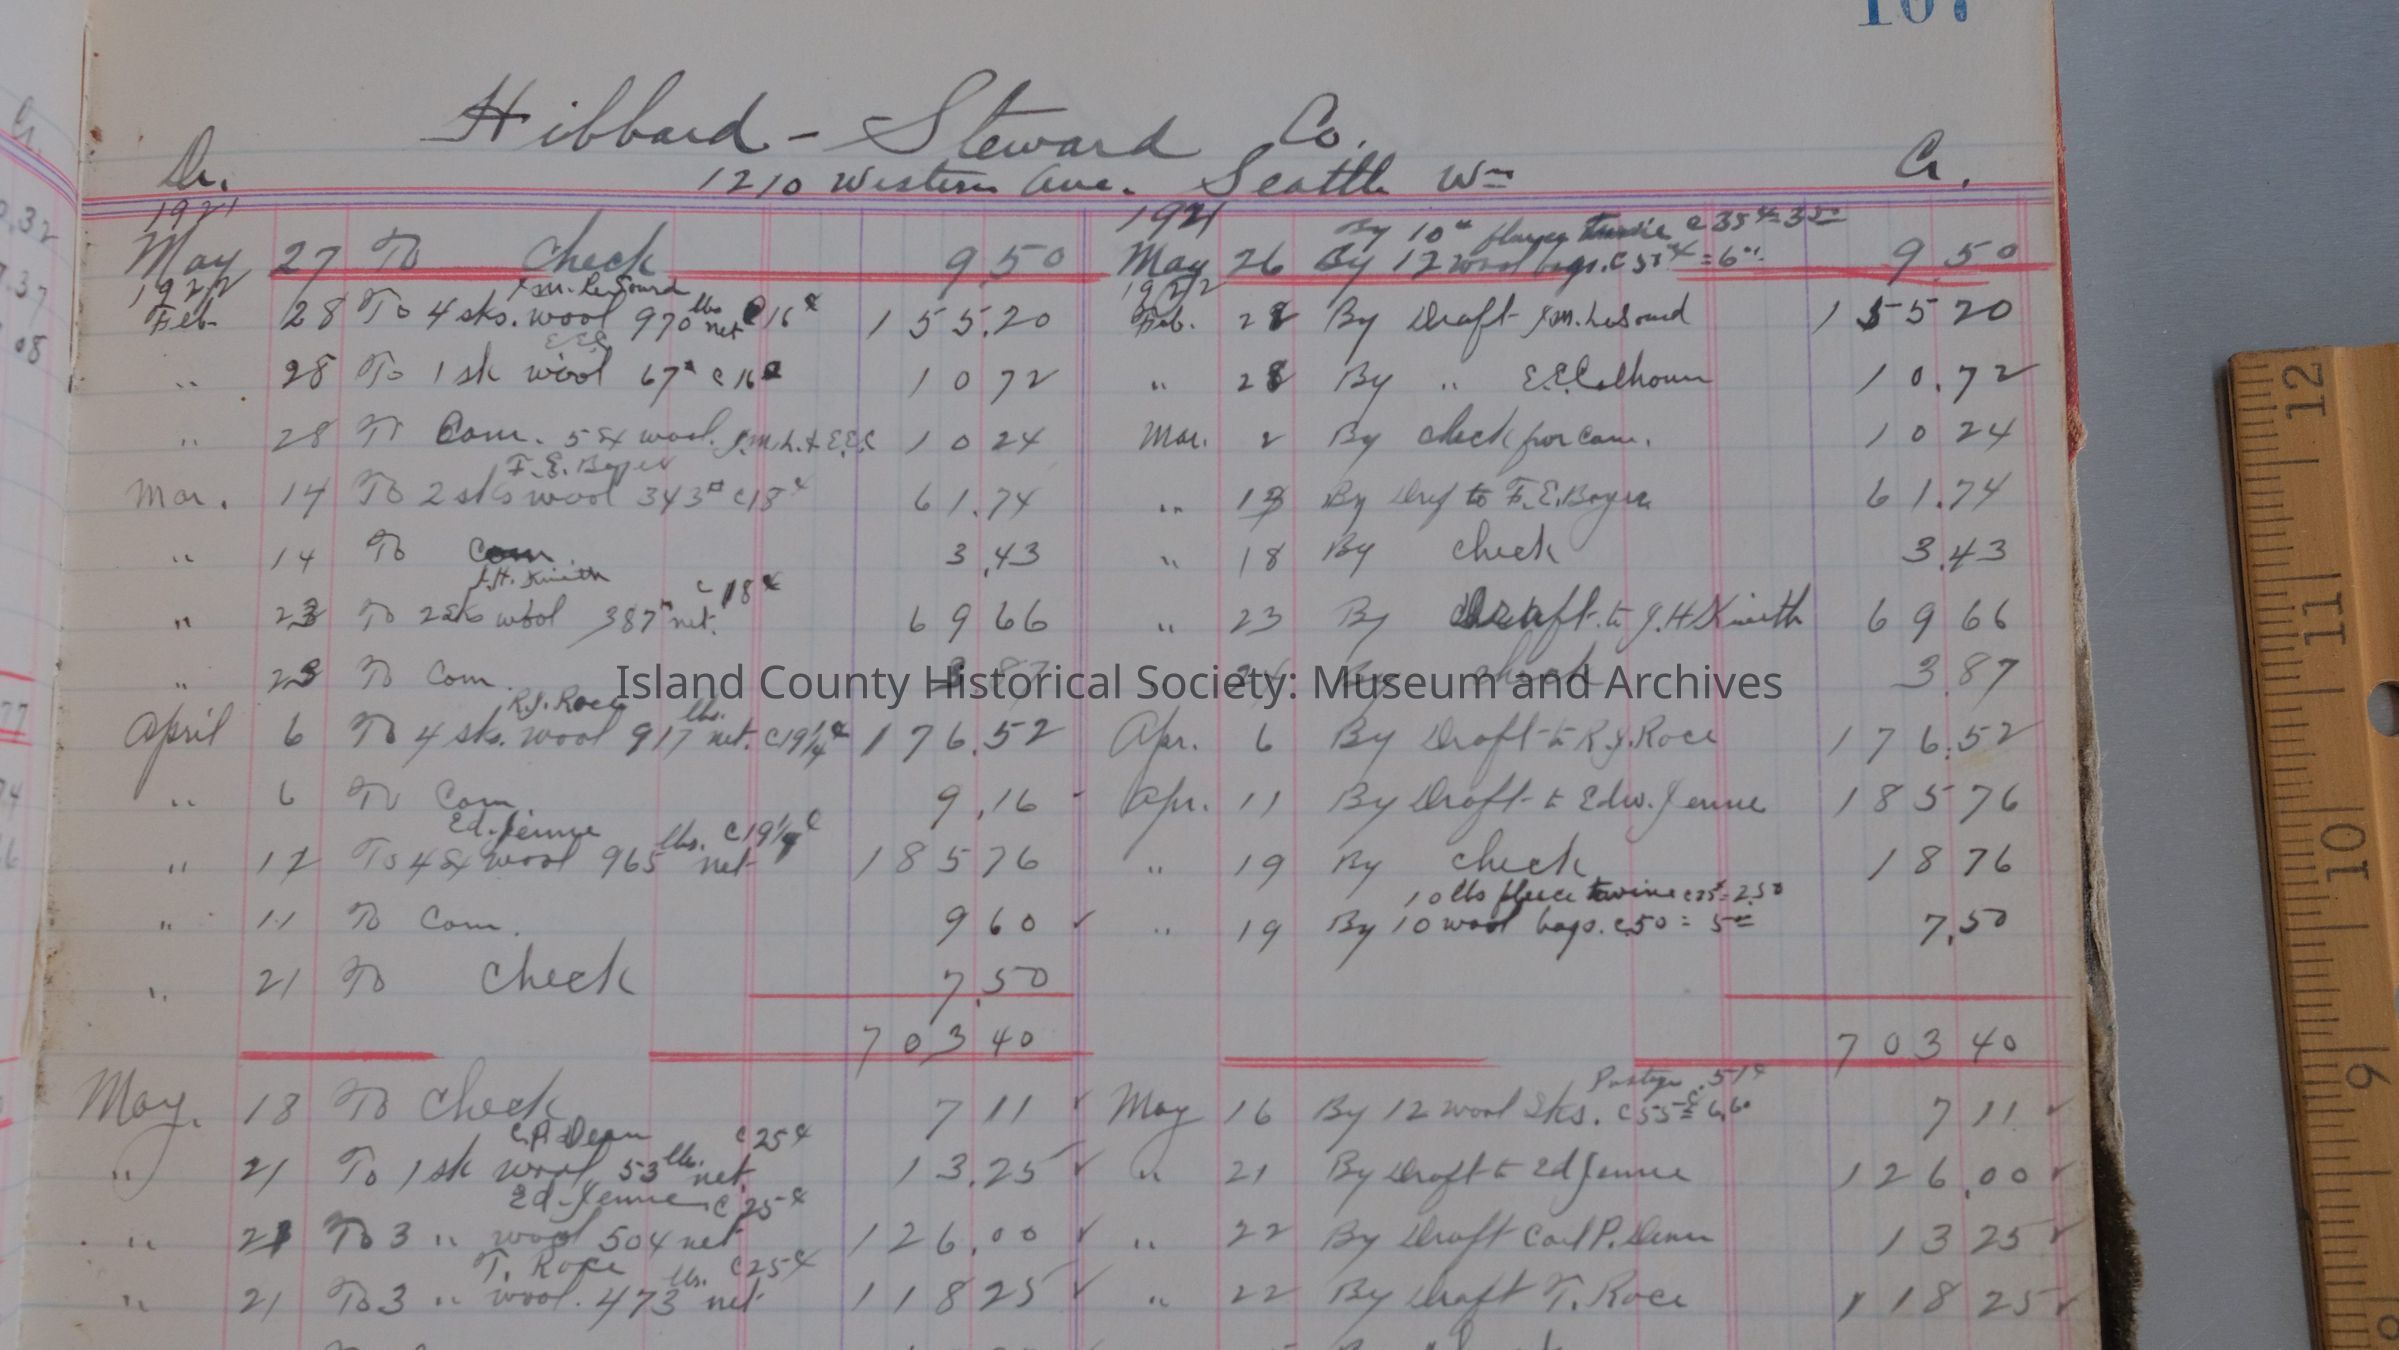 107
Hibbard - Steward Co.
Dr. 1210 Western Ave. Seattle Wn Cr.
1921 1921
By 10# fleece twine @ 35¢ = 3.50
May 27 To Check 9.50 May 26 By 12 wool bags. @ 50¢ = 6.00 9.50
1922 J.M. LeSourd 1922
Feb. 28 To 4 sks. wool 970 lbs net @ 16¢ 155.20 Feb. 28 By Draft J.M. LeSourd 155 20
E.E.C.
" 28 To 1 sk wool 67# @ 16¢ 10 72 " 28 By " E.E. Calhoun 10.72
" 28 To Com. 5 sx wool. J.M.L. & E.E.C 10 24 Mar. 2 By check for Com. 10 24
F.E. Boyer
Mar. 14 To 2 sks wool 343# @ 18¢ 61.74 " 18 By Drft to F.E. Boyer 61.74
" 14 To Com 3.43 " 18 By check 3.43
J.H. Smith @ 18¢
" 23 To 2 sks wool 387# net. 69 66 " 23 By Draft to J.H Smith 69 66
" 23 To Com. 3 87 " 24 By check 3.87
Island County Historical Society: Museum and Archives
R.J. Race
April 6 To 4 sks. wool 917 lbs. net. @ 19¼¢ 176.52 Apr. 6 By Draft to R.J. Race 176.52
" 6 To Com. 9.16 - Apr. 11 By Draft to Edw. Jenne 185 76
Ed. Jenne lbs. @ 19¼¢
" 12 To 4 sx wool 965 net 185 76 " 19 By check 18 76
10 lbs fleece twine @ 25¢ = 2.50
" 11 To Com. 9 60 ✓ " 19 By 10 wool bags. @ 50 = 5.00 7.50
" 21 To Check 7.50
703 40 703 40
Postage .51¢
May. 18 To Check 7 11 ✓ May 16 By 12 wool sks. @ 55¢ = 6.60 7 11 ✓
C.P. Dean @ 25¢
" 21 To 1 sk wool 53 lbs. net. 13.25 ✓ " 21 By Draft to Ed Jenne 126.00 ✓
Ed. Jenne @ 25¢
" 21 To 3 " wool 504 net 126.00 ✓ " 22 By Draft Carl P. Dean 13 25 ✓
T. Race @ 25¢
" 21 To 3 " wool. 473 lbs. net 118 25 ✓ " 22 By Draft T. Race 118 25 ✓